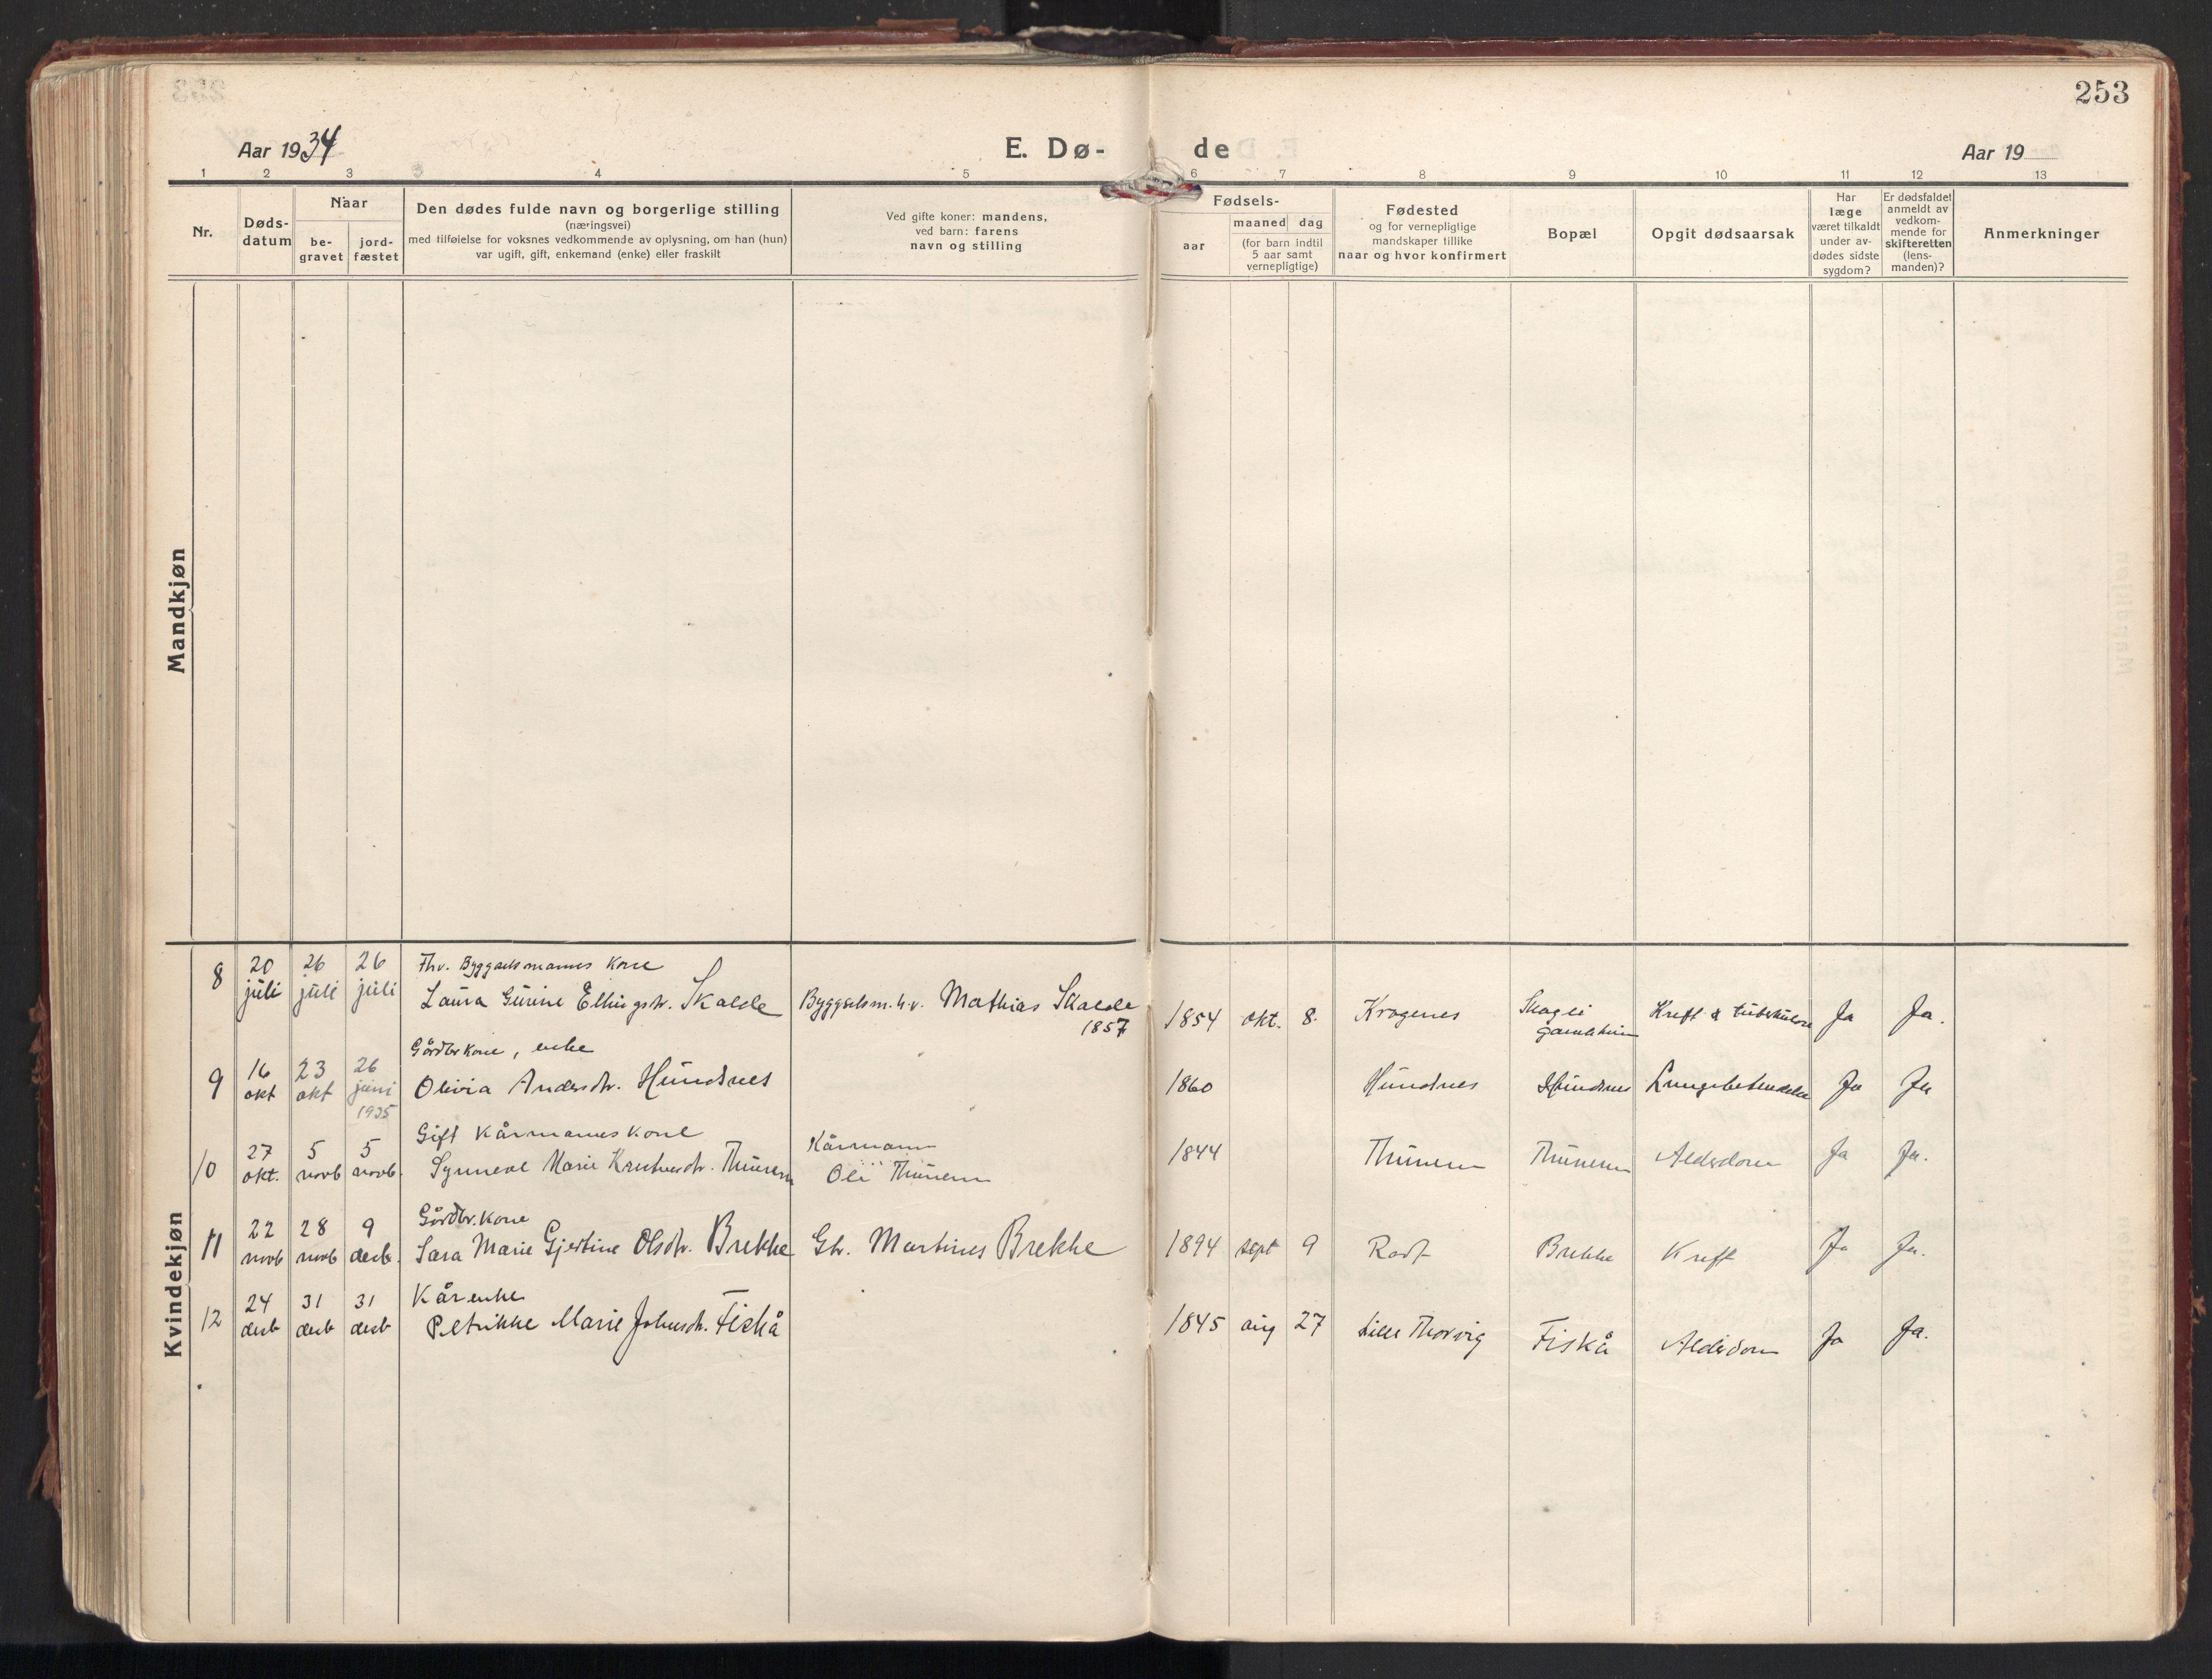 253
Aar 1934
E. Dø-
de
Aar 19
1 2 3 4 5 6 7 8 9 10 11 12 13
Nr.
Døds-
datum
Naar
be-
gravet
jord-
fæstet
Den dødes fulde navn og borgerlige stilling
(næringsvei)
med tilføielse for voksnes vedkommende av oplysning, om han (hun)
var ugift, gift, enkemand (enke) eller fraskilt
Ved gifte koner: mandens,
ved barn: farens
navn og stilling
Fødsels-
aar
maaned dag
(for barn indtil
5 aar samt
vernepligtige)
Fødested
og for vernepligtige
mandskaper tillike
naar og hvor konfirmert
Bopæl
Opgit dødsaarsak
Har
læge
været tilkaldt
under av-
dødes sidste
sygdom?
Er dødsfaldet
anmeldt av
vedkom-
mende for
skifteretten
(lens-
manden)?
Anmerkninger
Mandkjøn
Kvindekjøn
8
20
juli
26
juli
26
juli
Fhv. Byggselsmannes Kone
Laura Gurine Ellingsdr. Skalde
Byggselsm. h.v. Mathias Skalde
1857
1854 okt. 8.
Kragenes
Skagli
gamleheim
Kreft & tuberkulose
Ja
Ja.
9
16
okt
23
okt
26
juni
1935
Gårdbr Kone, enke
Olivia Andersdr. Hundsnes
1860
Hundsnes
Hundsnes
Lungebetendelse
Ja
Ja
10
27
okt.
5
novb
5
novb.
Gift Kårmannes Kone
Synneve Marie Thunem
Kårmann
Ole Thunem
1844
Thunem
Thunem
Alderdom
Ja
Ja.
11
22
novb
28
novb
9
desb.
Gårdbr. Kone
Sara Marie Gjertine Olsdr. Brekke
Gbr. Martines Brekke
1894 sept 9
Brekke
Kreft
Ja
Ja.
12
24
desb
31
desb
31
desb
Kårenke
Petrikke Marie Johnsdr. Fiskå
1845 aug 27
Lille Thorvig
Fiskå
Alderdom
Ja
Ja.